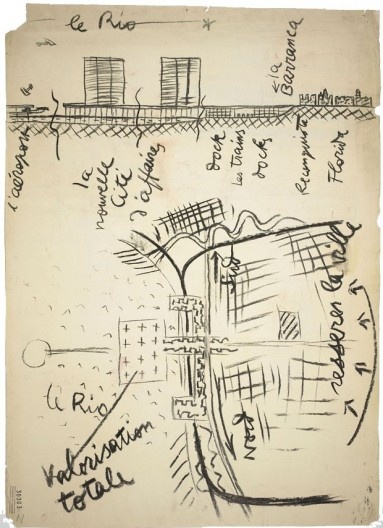 le Rio
la Barranca
l'aéroport
la
nouvelle
Cité
d'affaires
dock
les trains
dock
Reconquista
Florida
Sud
resserer la ville
le Rio
Nord
valorisation
totale